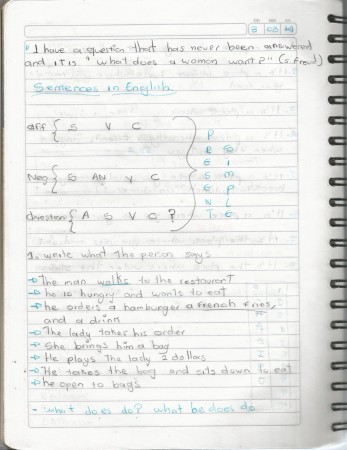 3 03
" I have a question that has never been answered
and it is " what does a woman want?" (S. Freud)
Sentences in English
aff { S V C
Neg { S AN V C
Question { A S V C ?
PRESENT
SIMPLE
1. write what the person says
The man walks to the restaurant
he is hungry and wants to eat
he orders a hamburger a french fries,
and a drink
The lady takes his order
She brings him a bag
He plays The lady 2 dollars
He takes the bag and sits down to eat
he open to bags
- what does do? what he does do